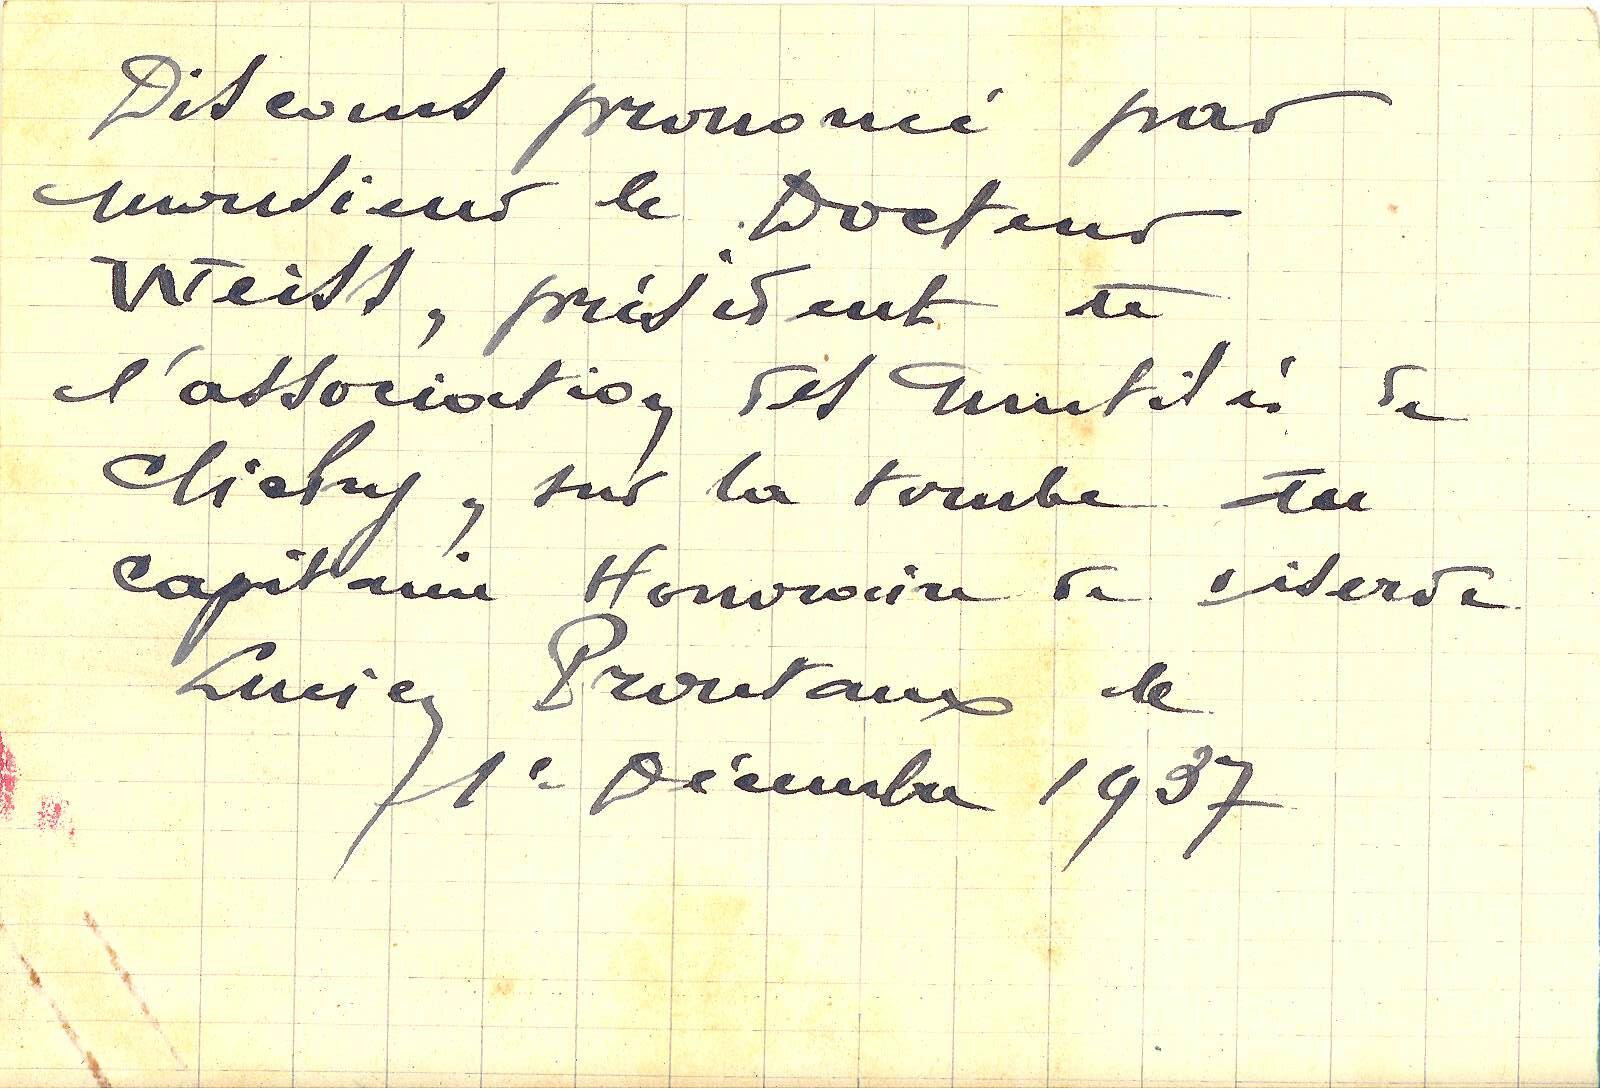 Discours prononcé par
monsieur le Docteur
Weiss, président de
l'association des mutilés de
Clichy, sur la tombe du
capitaine Honoraire de réserve
Lucien Prontaux le
1er Décembre 1937